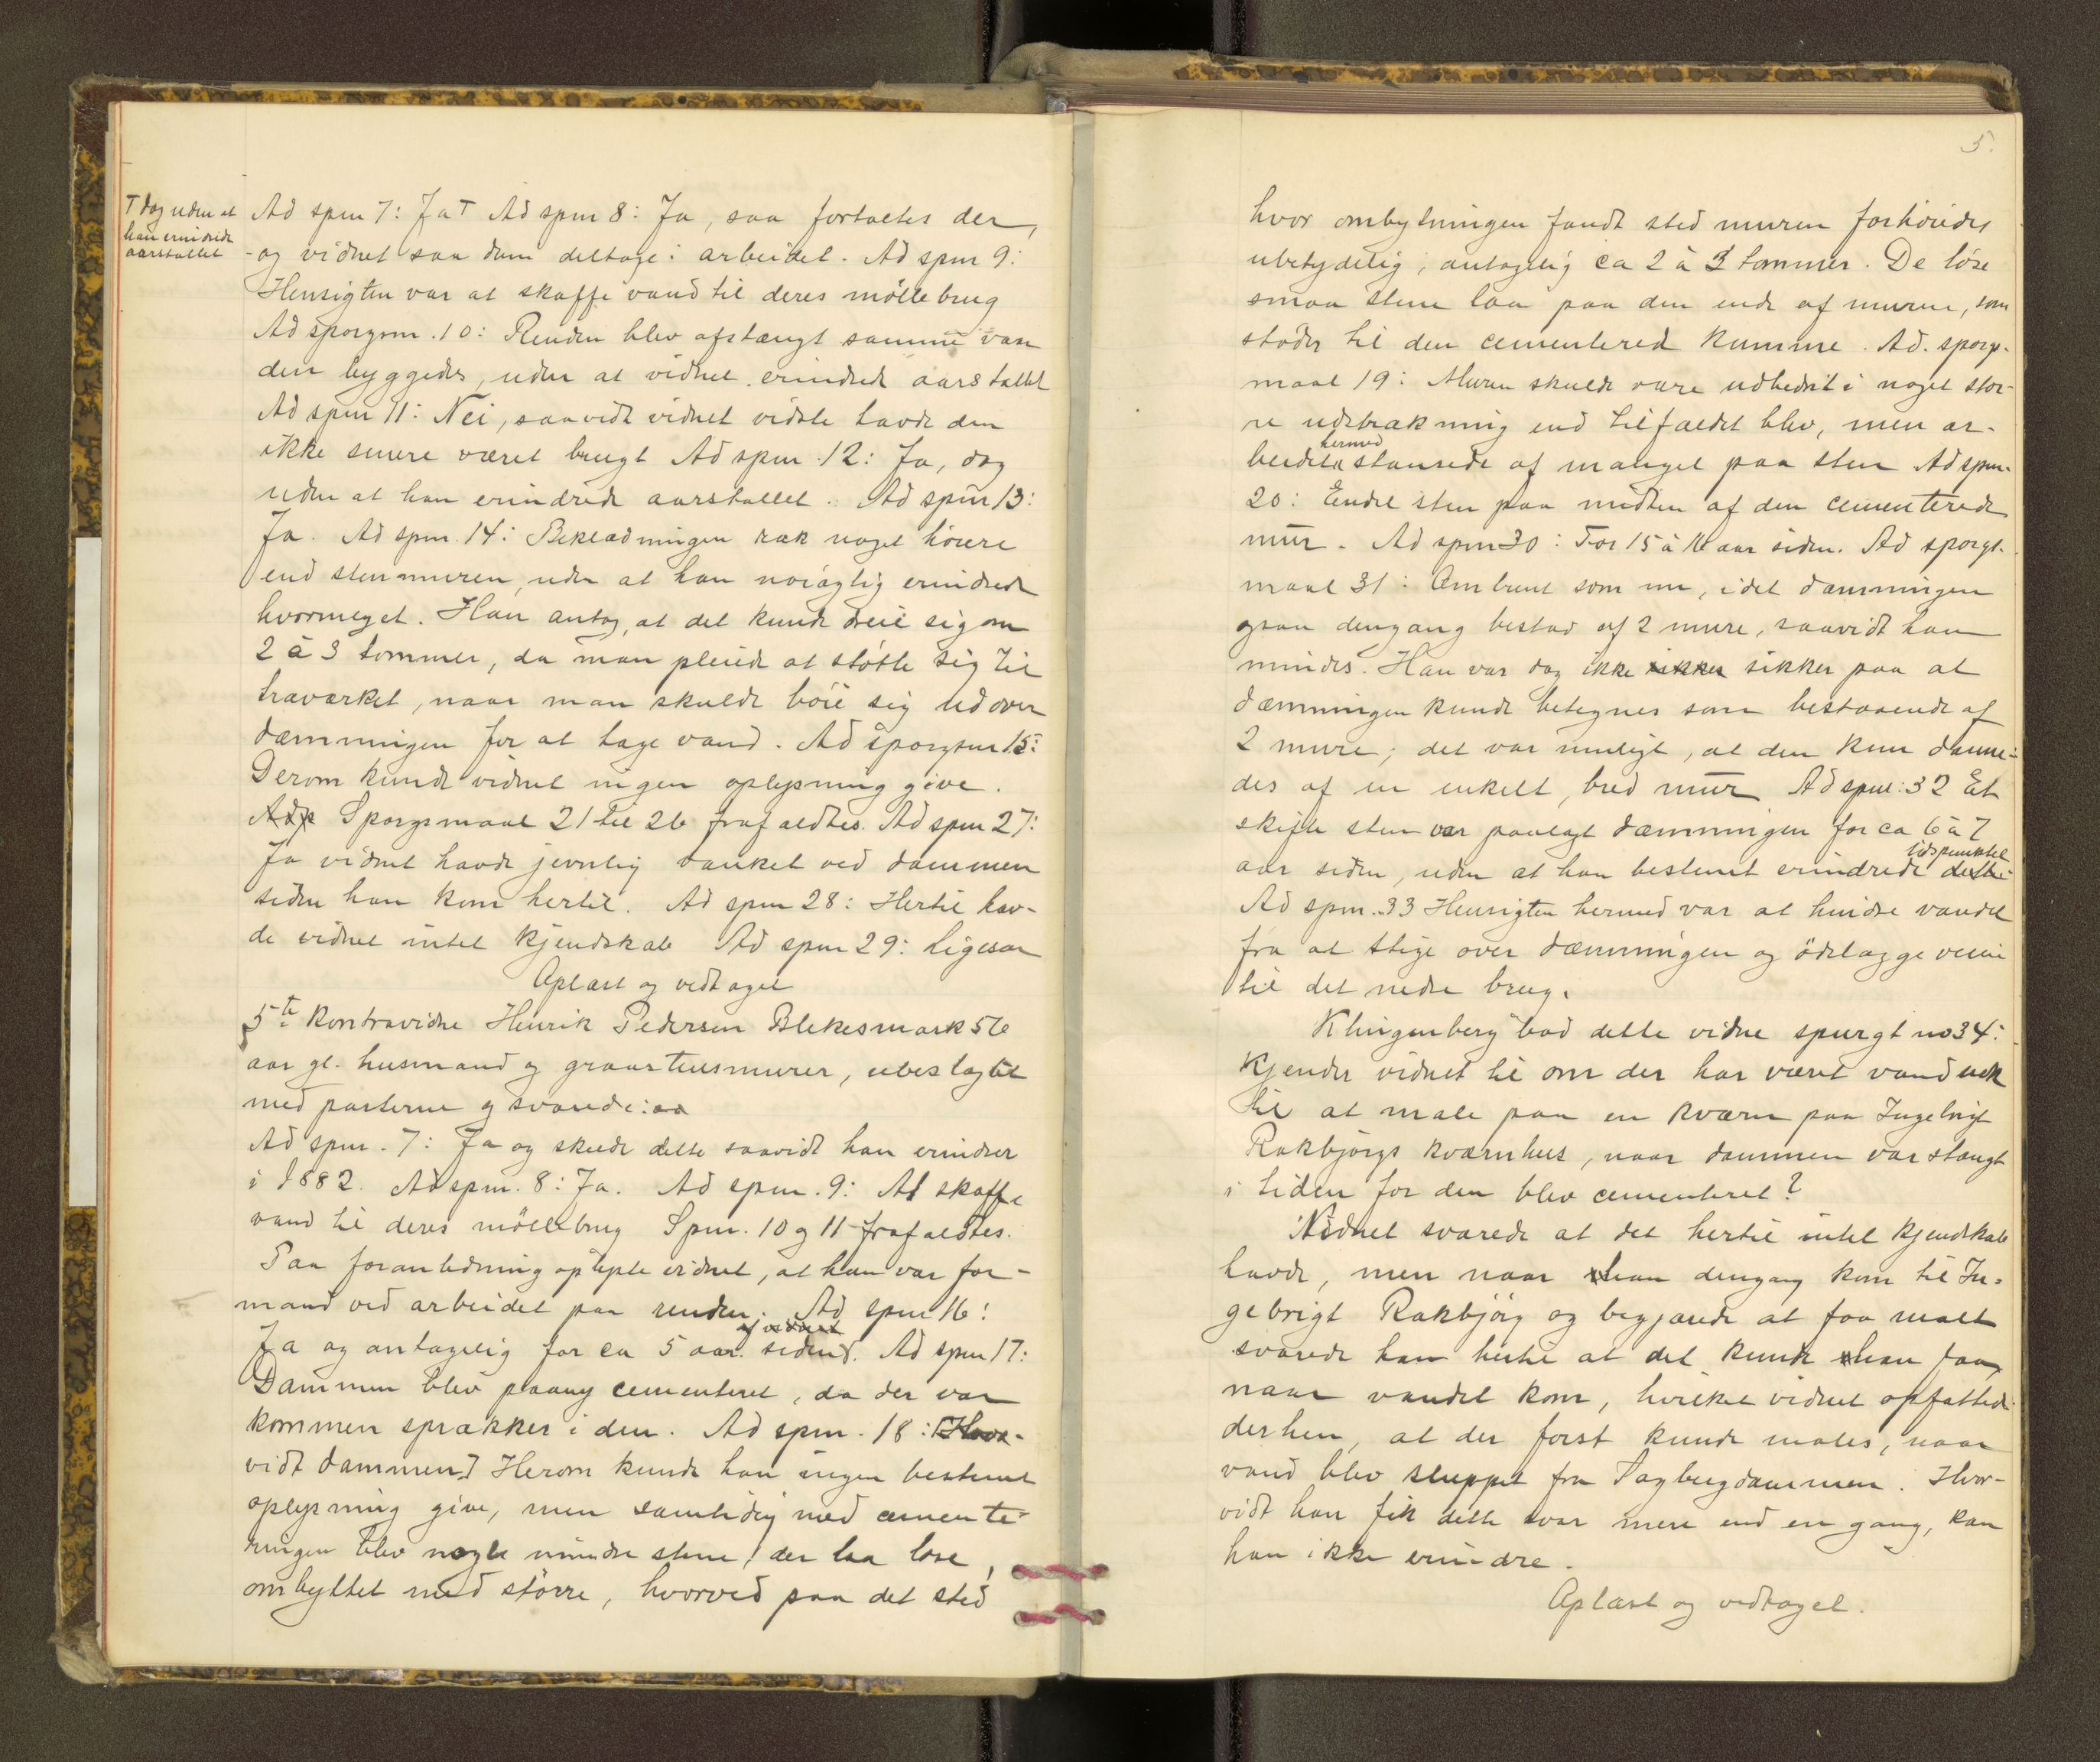 T dog uden at
han erindrede
aarstallet
Ad spm 7: Ja T Ad spm 8: Ja, saa fortaltes der,
og vidnet saa dem deltage i arbeidet. Ad spm 9:
Hensigten var at skaffe vand til deres møllebrug
Ad spørgsm. 10: Renden blev afstængt samme var
den byggedes, uden at vidnet erindrede aarstallet
Ad spm 11: Nei, saavidt vidnet vidste havde den
ikke senere været brugt Ad spm. 12: Ja, dog
uden at han erindrede aarstallet. Ad spm 13:
Ja. Ad spm. 14: Beklædningen rak noget høiere
end stenmuren, uden at han nøiagtig erindrede
hvormeget. Han antog, at det kunde dreie sig om
2 à 3 tommer, da man pleiede at støtte sig til
træværket, naar man skulde bøie sig ud over
dæmningen for at tage vand. Ad spørgsm 15:
Derom kunde vidnet ingen oplysning give.
Spørgsmaal 21 til 26 frafaldtes. Ad spm 27:
Ja vidnet havde jevnlig vanket ved dammen
siden han kom hertil. Ad spm 28: Hertil hav-
de vidnet intet kjendskab Ad spm 29: Ligesaa
Oplæst og vedtaget
5te kontravidne Henrik Pedersen Blekesmark 56
aar gl. husmand og graastensmurer, ubeslægtet
med parterne og svarede: aa
Ad spm. 7: Ja og skede dette saavidt han erindrer
i 1882. Ad spm. 8: Ja. Ad spm. 9: At skaffe
vand til deres møllebrug Spm. 10 og 11 frafaldtes.
Paa foranledning oplyste vidnet, at han var for-
mand ved arbeidet paa renden. Ad spm 16:
af vidnet
Ja og antagelig for ca 5 aar siden. Ad spm 17:
Dammen blev paany cementeret, da der var
kommen sprækker i den. Ad spm. 18: [Hvor-
vidt dammen] Herom kunde han ingen bestemt
oplysning give, men samtidig med cemente-
ringen blev nogle mindre stene, der laa løse,
ombyttet med større, hvorved paa det sted
5.
hvor ombytningen fandt sted muren forhøiedes
ubetydelig, antagelig ca 2 à 3 tommer. De løse
smaa stene laa paa den ende af muren, som
støder til den cementered kumme. Ad. spørgs-
maal 19: Muren skulde være udbedret i noget stør-
re udstrækning end tilfældet blev, men ar-
hermed
beidet stansede af mangel paa sten Ad spm.
20: Endel sten paa midten af den cementerede
mur. Ad spm 30: For 15 à 16 aar siden. Ad spørgs-
maal 31: Ombrent som nu, idet dæmningen
ogsaa dengang bestod af 2 mure, saavidt han
mindes. Han var dog ikke sikker sikker paa at
dæmningen kunde betegnes som bestaaende af
2 mure; det var muligt, at den kun danne-
des af en enkelt, bred mur Ad spm: 32 Et
skifte sten var paalagt dæmningen for ca 6 à 7
tidspunktet
aar siden, uden at han bestemt erindrede dette
Ad spm. 33 Hensigten hermed var at hindre vandet
fra at stige over dæmningen og ødelægge veien
til det nedre brug.
Klingenberg bad dette vidne spurgt no 34:
Kjender vidnet til om der har været vand nok
til at male paa en kværn paa Ingebrigt
Rakbjørgs kværnhus, naar dammen var stængt
i tiden før den blev cementeret?
Vidnet svarede at det hertil intet kjendskab
havde, men naar han dengang kom til In-
gebrigt Rakbjørg og begjærede at faa malt
svarede han hertil at det kunde han faa,
naar vandet kom, hvilket vidnet opfattede
derhen, at der først kunde males, naar
vand blev sluppet fra Sagbrugdammen. Hvor-
vidt han fik dette svar mere end en gang, kan
han ikke erindre.
Oplæst og vedtaget.